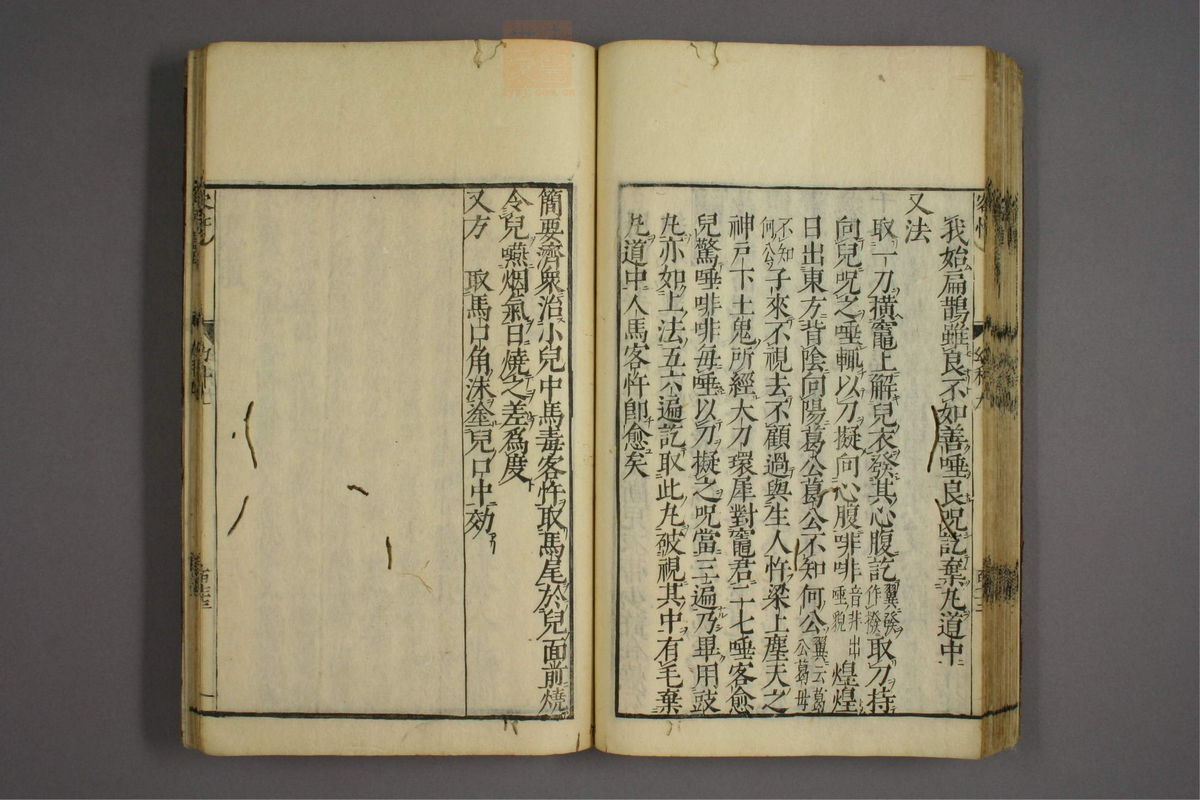 我始扁鵲雖良不如善唾良咒訖棄丸道中
又法
取一刀橫竈上解兒衣發其心腹訖翼發作撥取刀持
向兒咒之唾輒以刀擬向心腹啡啡音非出唾貌煌煌
日出東方背陰向陽葛公葛公不知何公翼云葛公葛母
不知何公子來不視去不顧過與生人忤梁上塵天之
神戶下土鬼所經大刀環犀對竈君二七唾客愈
兒驚唾啡啡每唾以刀擬之咒當三遍乃畢用豉
丸亦如上法五六遍訖取此丸破視其中有毛棄
丸道中人馬客忤即愈矣
簡要濟衆治小兒中馬毒客忤取馬尾於兒面前燒
令兒嚥烟氣日燒之差爲度
又方 取馬口角沫塗兒口中効